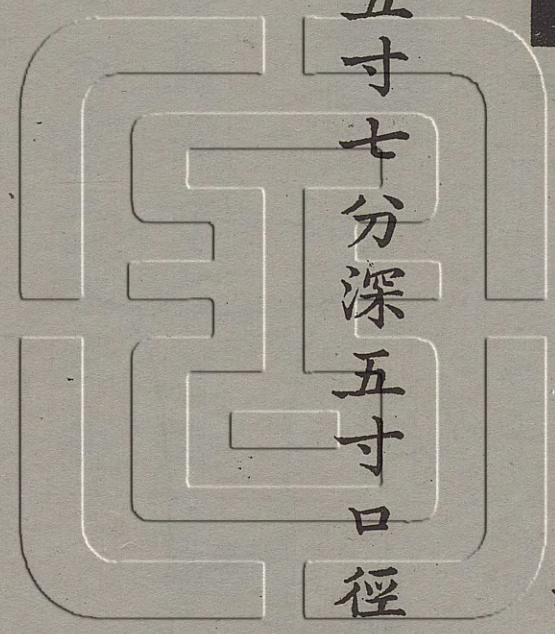 五寸七分深五寸口徑